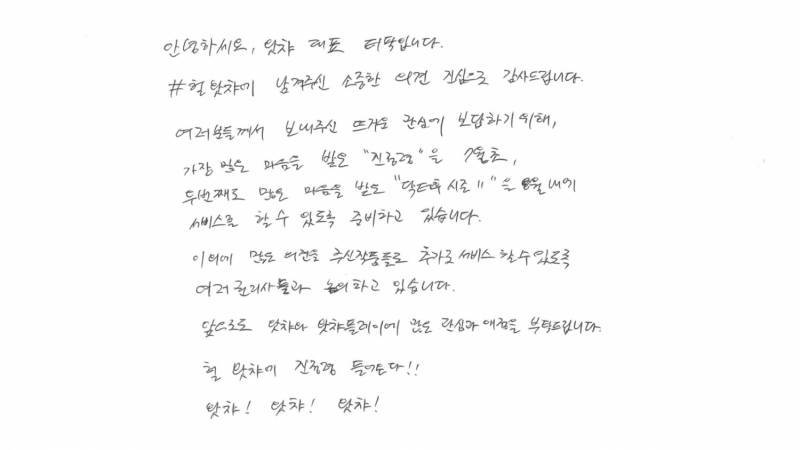 안녕하세요, 왓챠 대표 터락입니다.
#헐왓챠에 남겨주신 소중한 의견 진심으로 감사드립니다.
여러분들께서 보내주신 뜨거운 관심에 보답하기 위해,
가장 많은 마음을 받은 "진정령"을 7월초,
두번째로 많은 마음을 받은 "닥터후 시즌 11"을 8월내에
서비스를 할 수 있도록 준비하고 있습니다.
이외에 많은 의견을 주신작품들도 추가로 서비스 할 수 있도록
여러 권리사들과 논의하고 있습니다.
앞으로도 왓챠와 왓챠플레이에 많은 관심과 애정을 부탁드립니다.
헐 왓챠에 진정령 들어온다!!
왓챠! 왓챠! 왓챠!